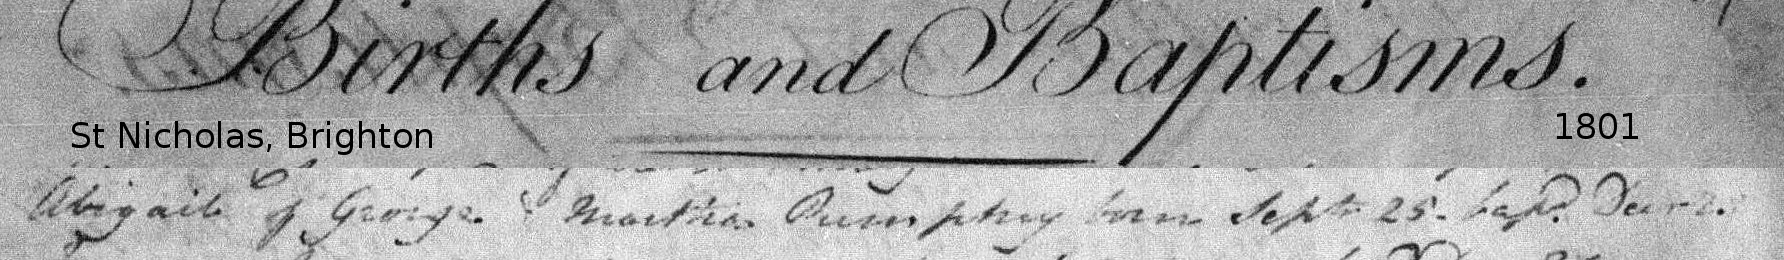 Births and Baptisms.
St Nicholas, Brighton 1801
Abigail of George & Martha Pumphrey born Sept 25. bap.d